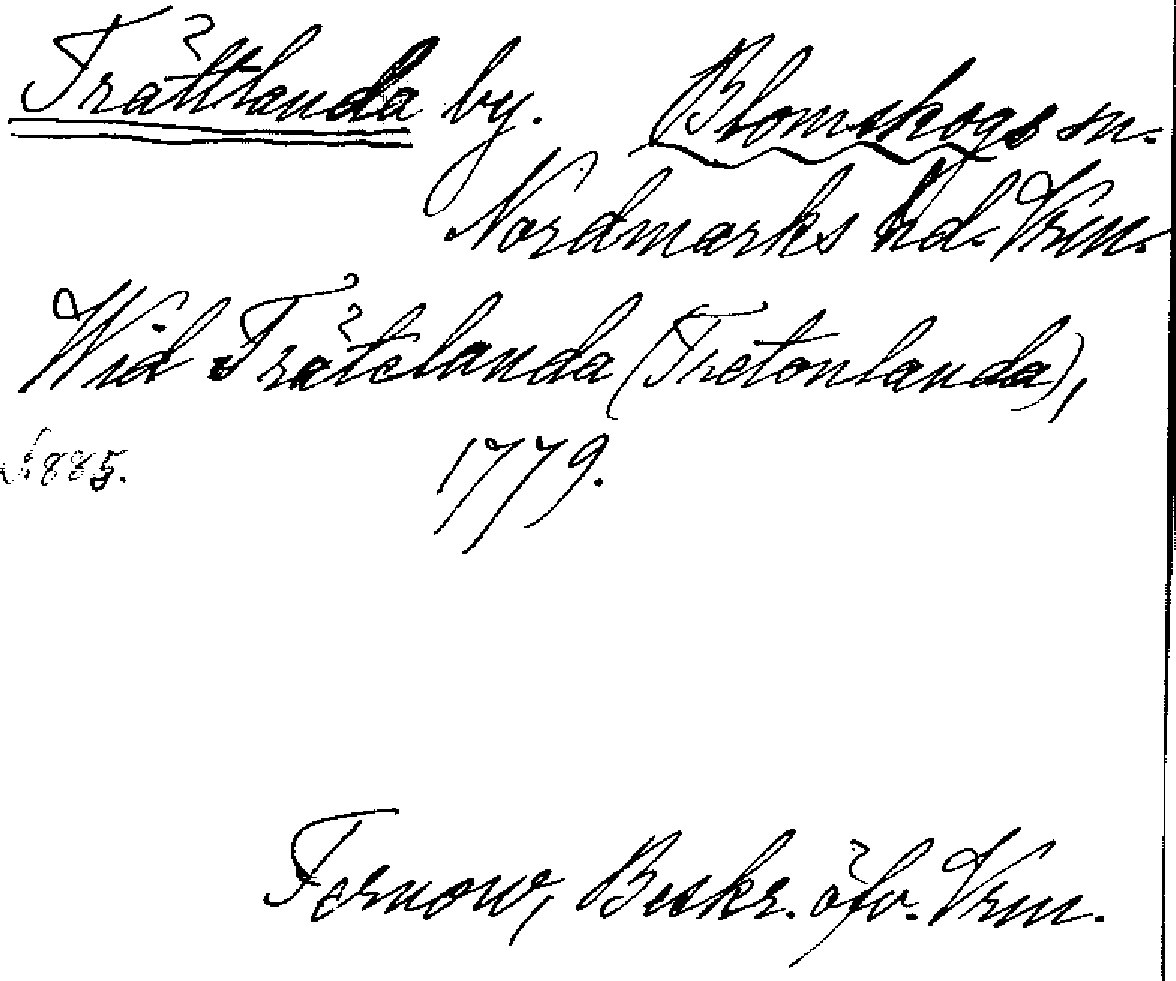 Trättlanda by. Blomskogs sn.
Nordmarks hd. Vrm.
Wid Trätelanda (Tretonlanda),
S. 885. 1779.
Fernow, Beskr. öfv. Vrm.